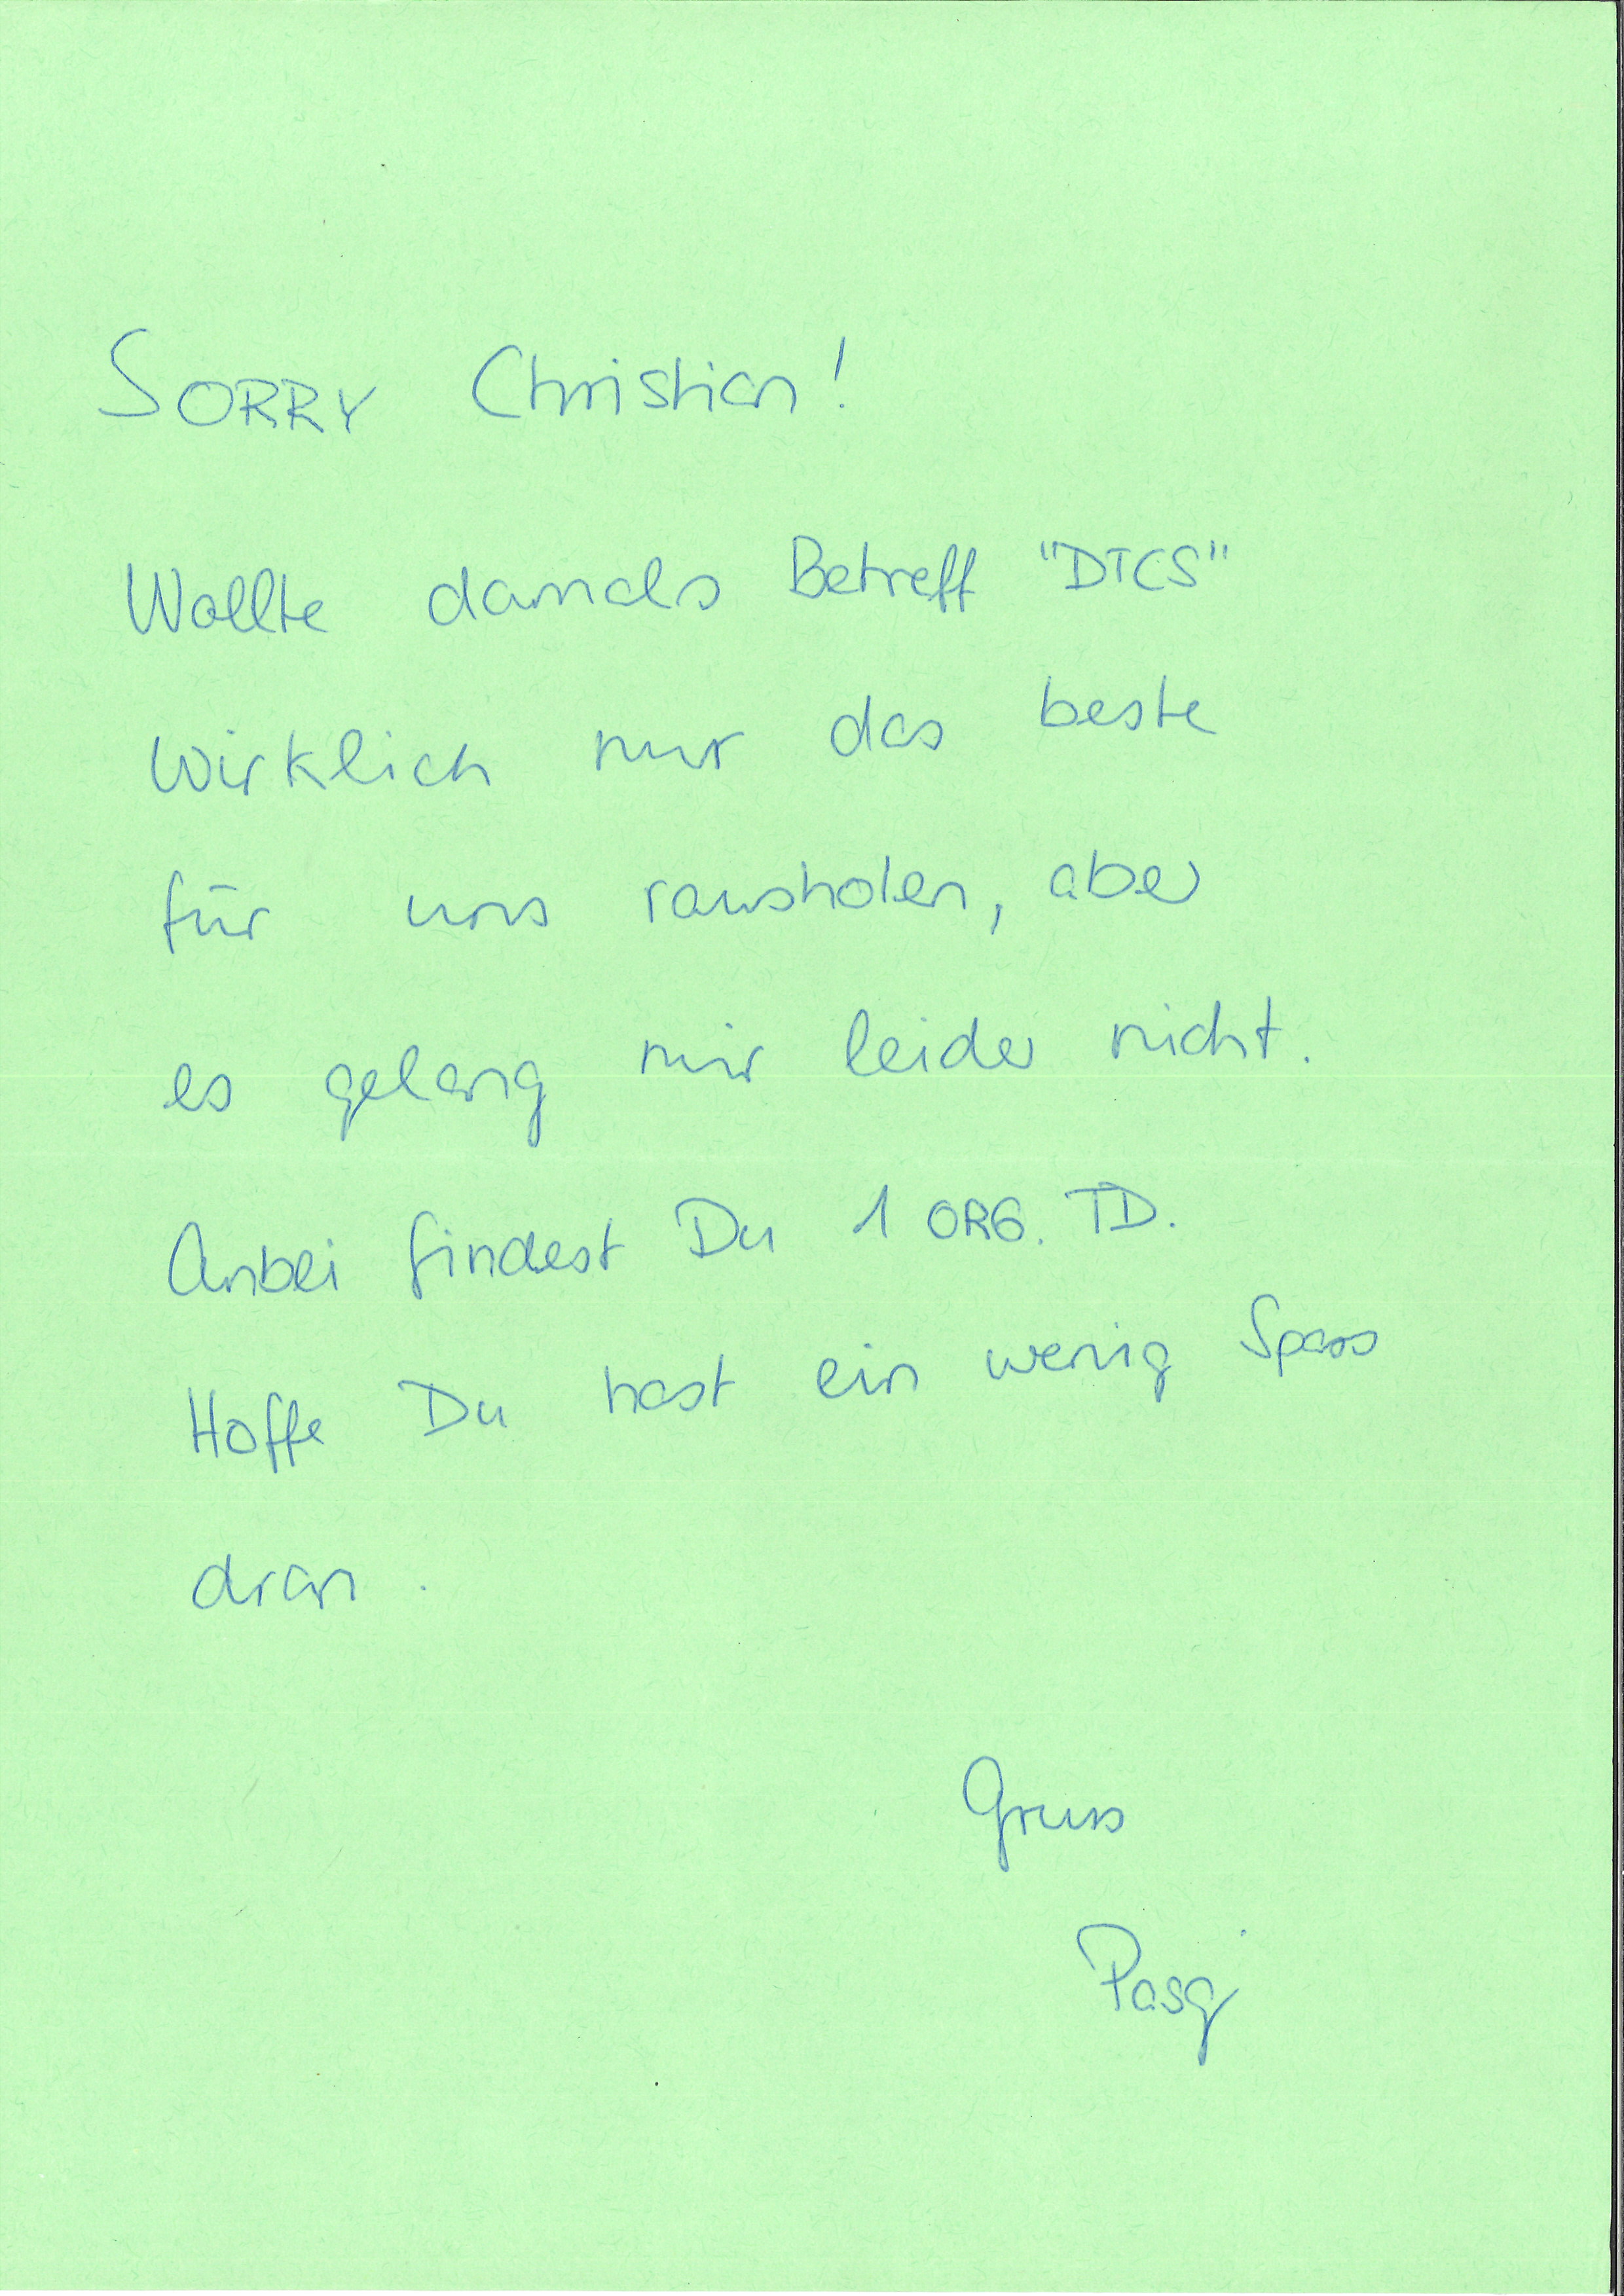 SORRY Christian!
Wollte damals Betreff "DTCS"
wirklich nur das beste
für uns rausholen, aber
es gelang mir leider nicht.
Anbei findest Du 1 ORG. TD.
Hoffe Du hast ein wenig Spass
dran.
Gruss